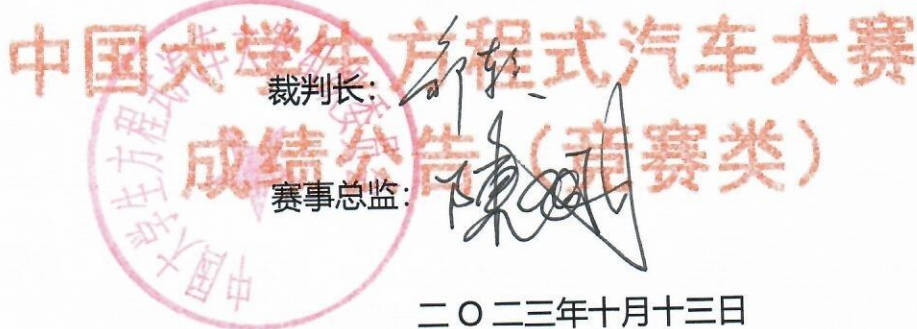 中国大学生方程式汽车大赛
裁判长：
成绩公告（竞赛类）
赛事总监：
二〇二三年十月十三日
中国大学生方程式汽车大赛